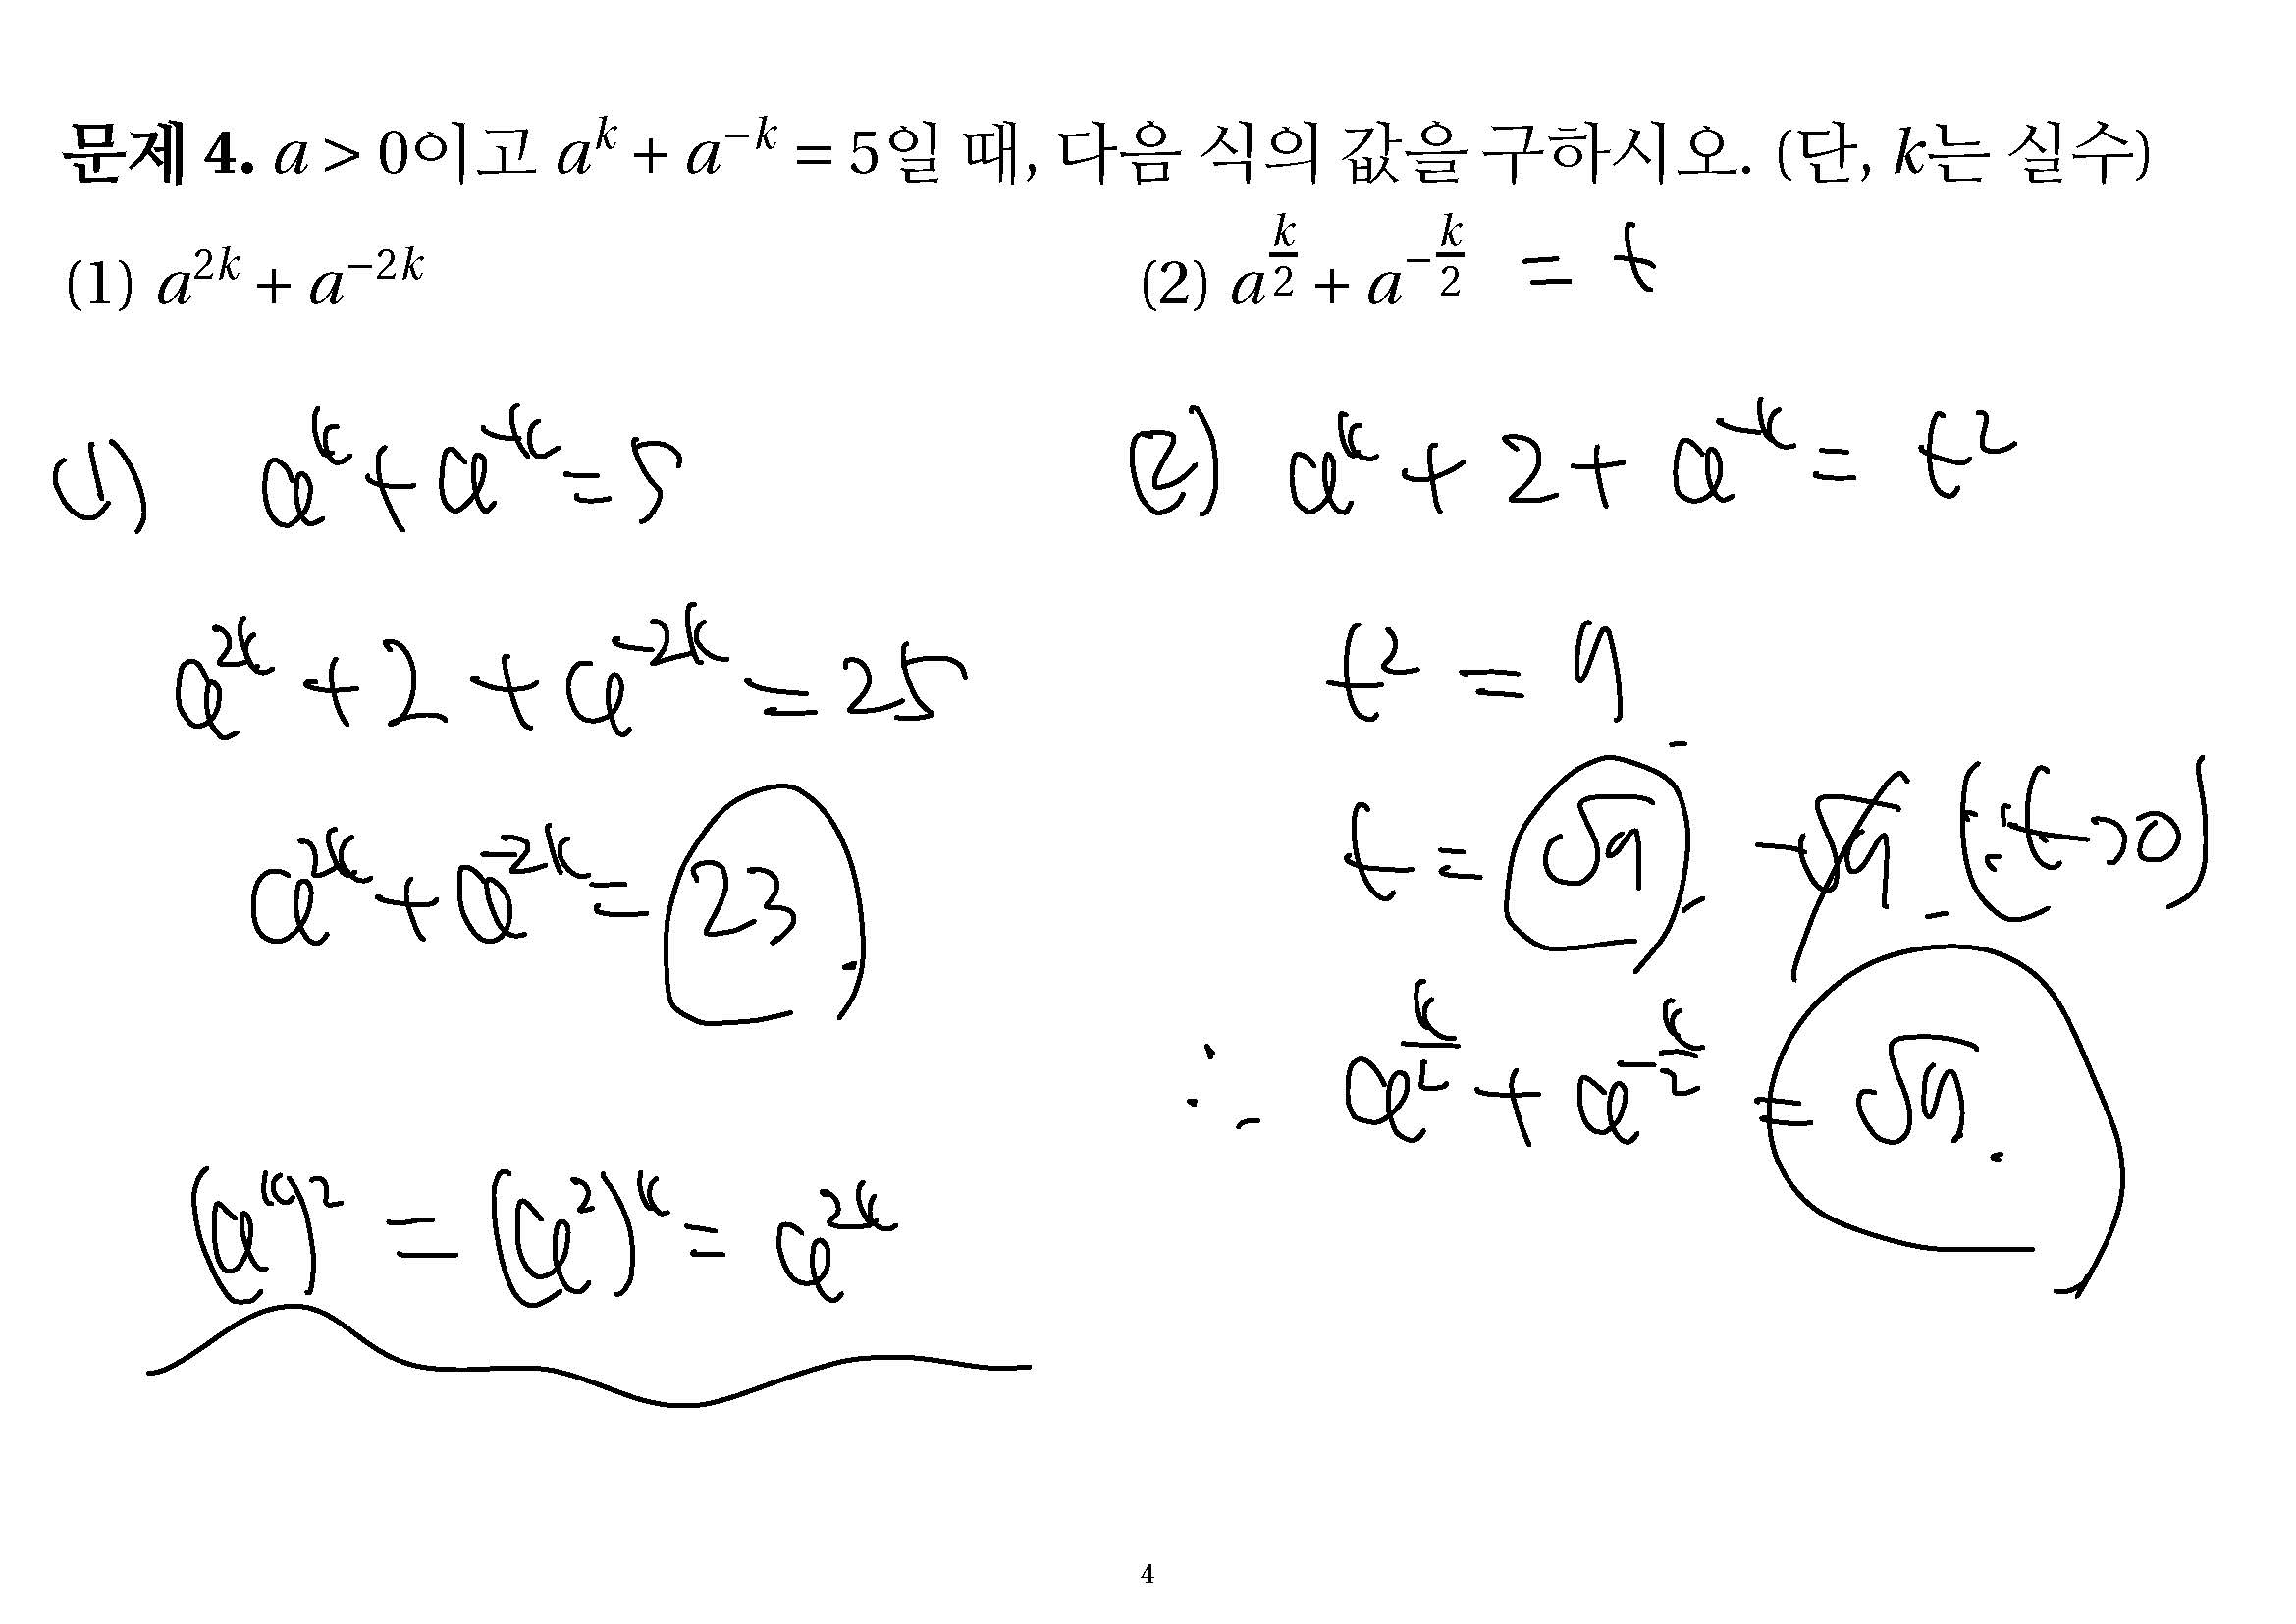 문제 4. a > 0이고 a^k + a^{-k} = 5일 때, 다음 식의 값을 구하시오. (단, k는 실수)
(1) a^{2k} + a^{-2k}
(2) a^{\frac{k}{2}} + a^{-\frac{k}{2}} = t
(1) a^k + a^{-k} = 5
a^{2k} + 2 + a^{-2k} = 25
a^{2k} + a^{-2k} = 23.
(a^k)^2 = (a^2)^k = a^{2k}
(2) a^k + 2 + a^{-k} = t^2
t^2 = 7.
t = √7, -√7. (∵ t>0)
∴ a^{\frac{k}{2}} + a^{-\frac{k}{2}} = √7.
4